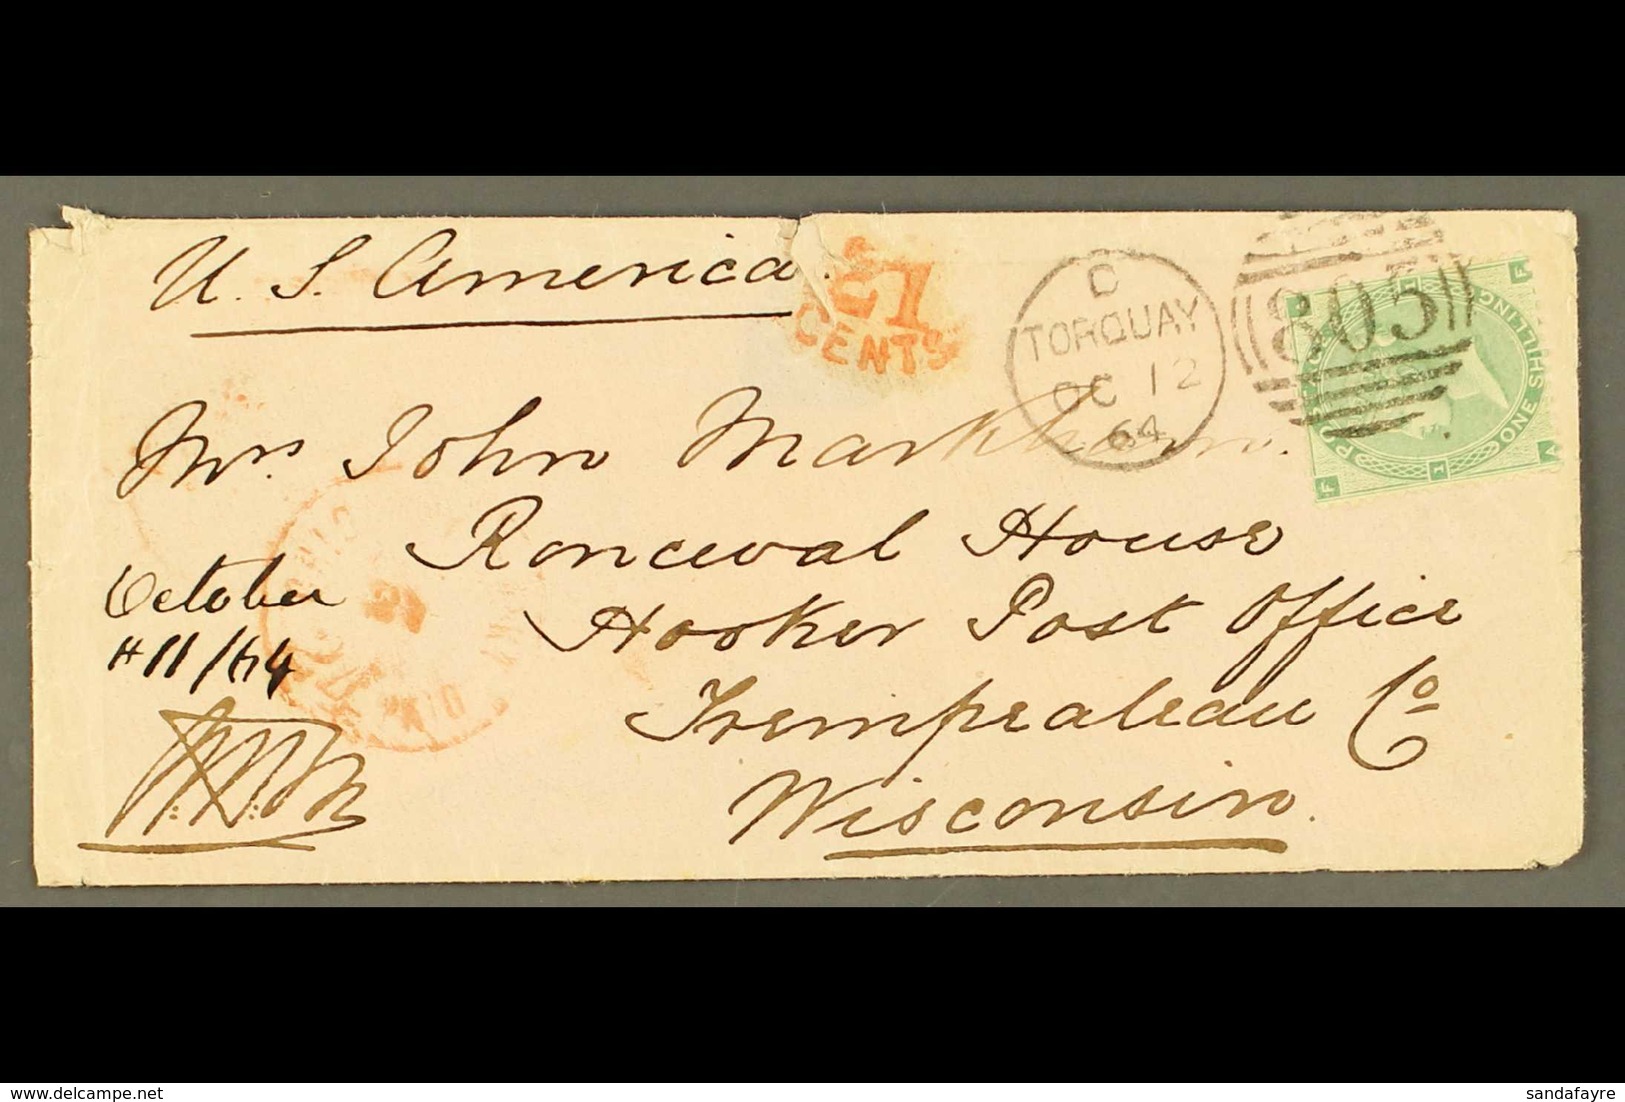 U. S. America
21
CENTS
C
TORQUAY
OC 12
64
805
ONE SHILLING
F
F
A
1
Mrs John Markham.
Ronceval House
Hooker Post Office
Trempealeau Co
Wisconsin.
October
11/64
sandafayre